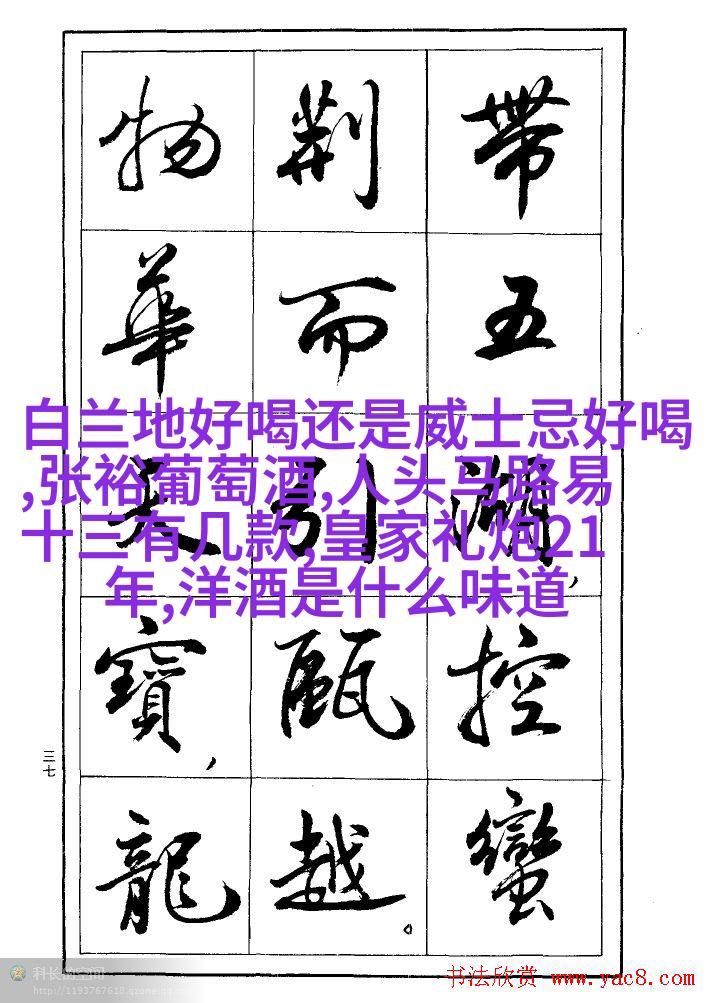 帶五湖,控蠻
荆而引甌越。
物華天寶,龍
白兰地好喝还是威士忌好喝
,张裕葡萄酒,人头马路易
十三有几款,皇家礼炮21
年,洋酒是什么味道
三七
科长的空间
http://1193767618.qzone.qq.com
书法欣赏 www.yac8.com